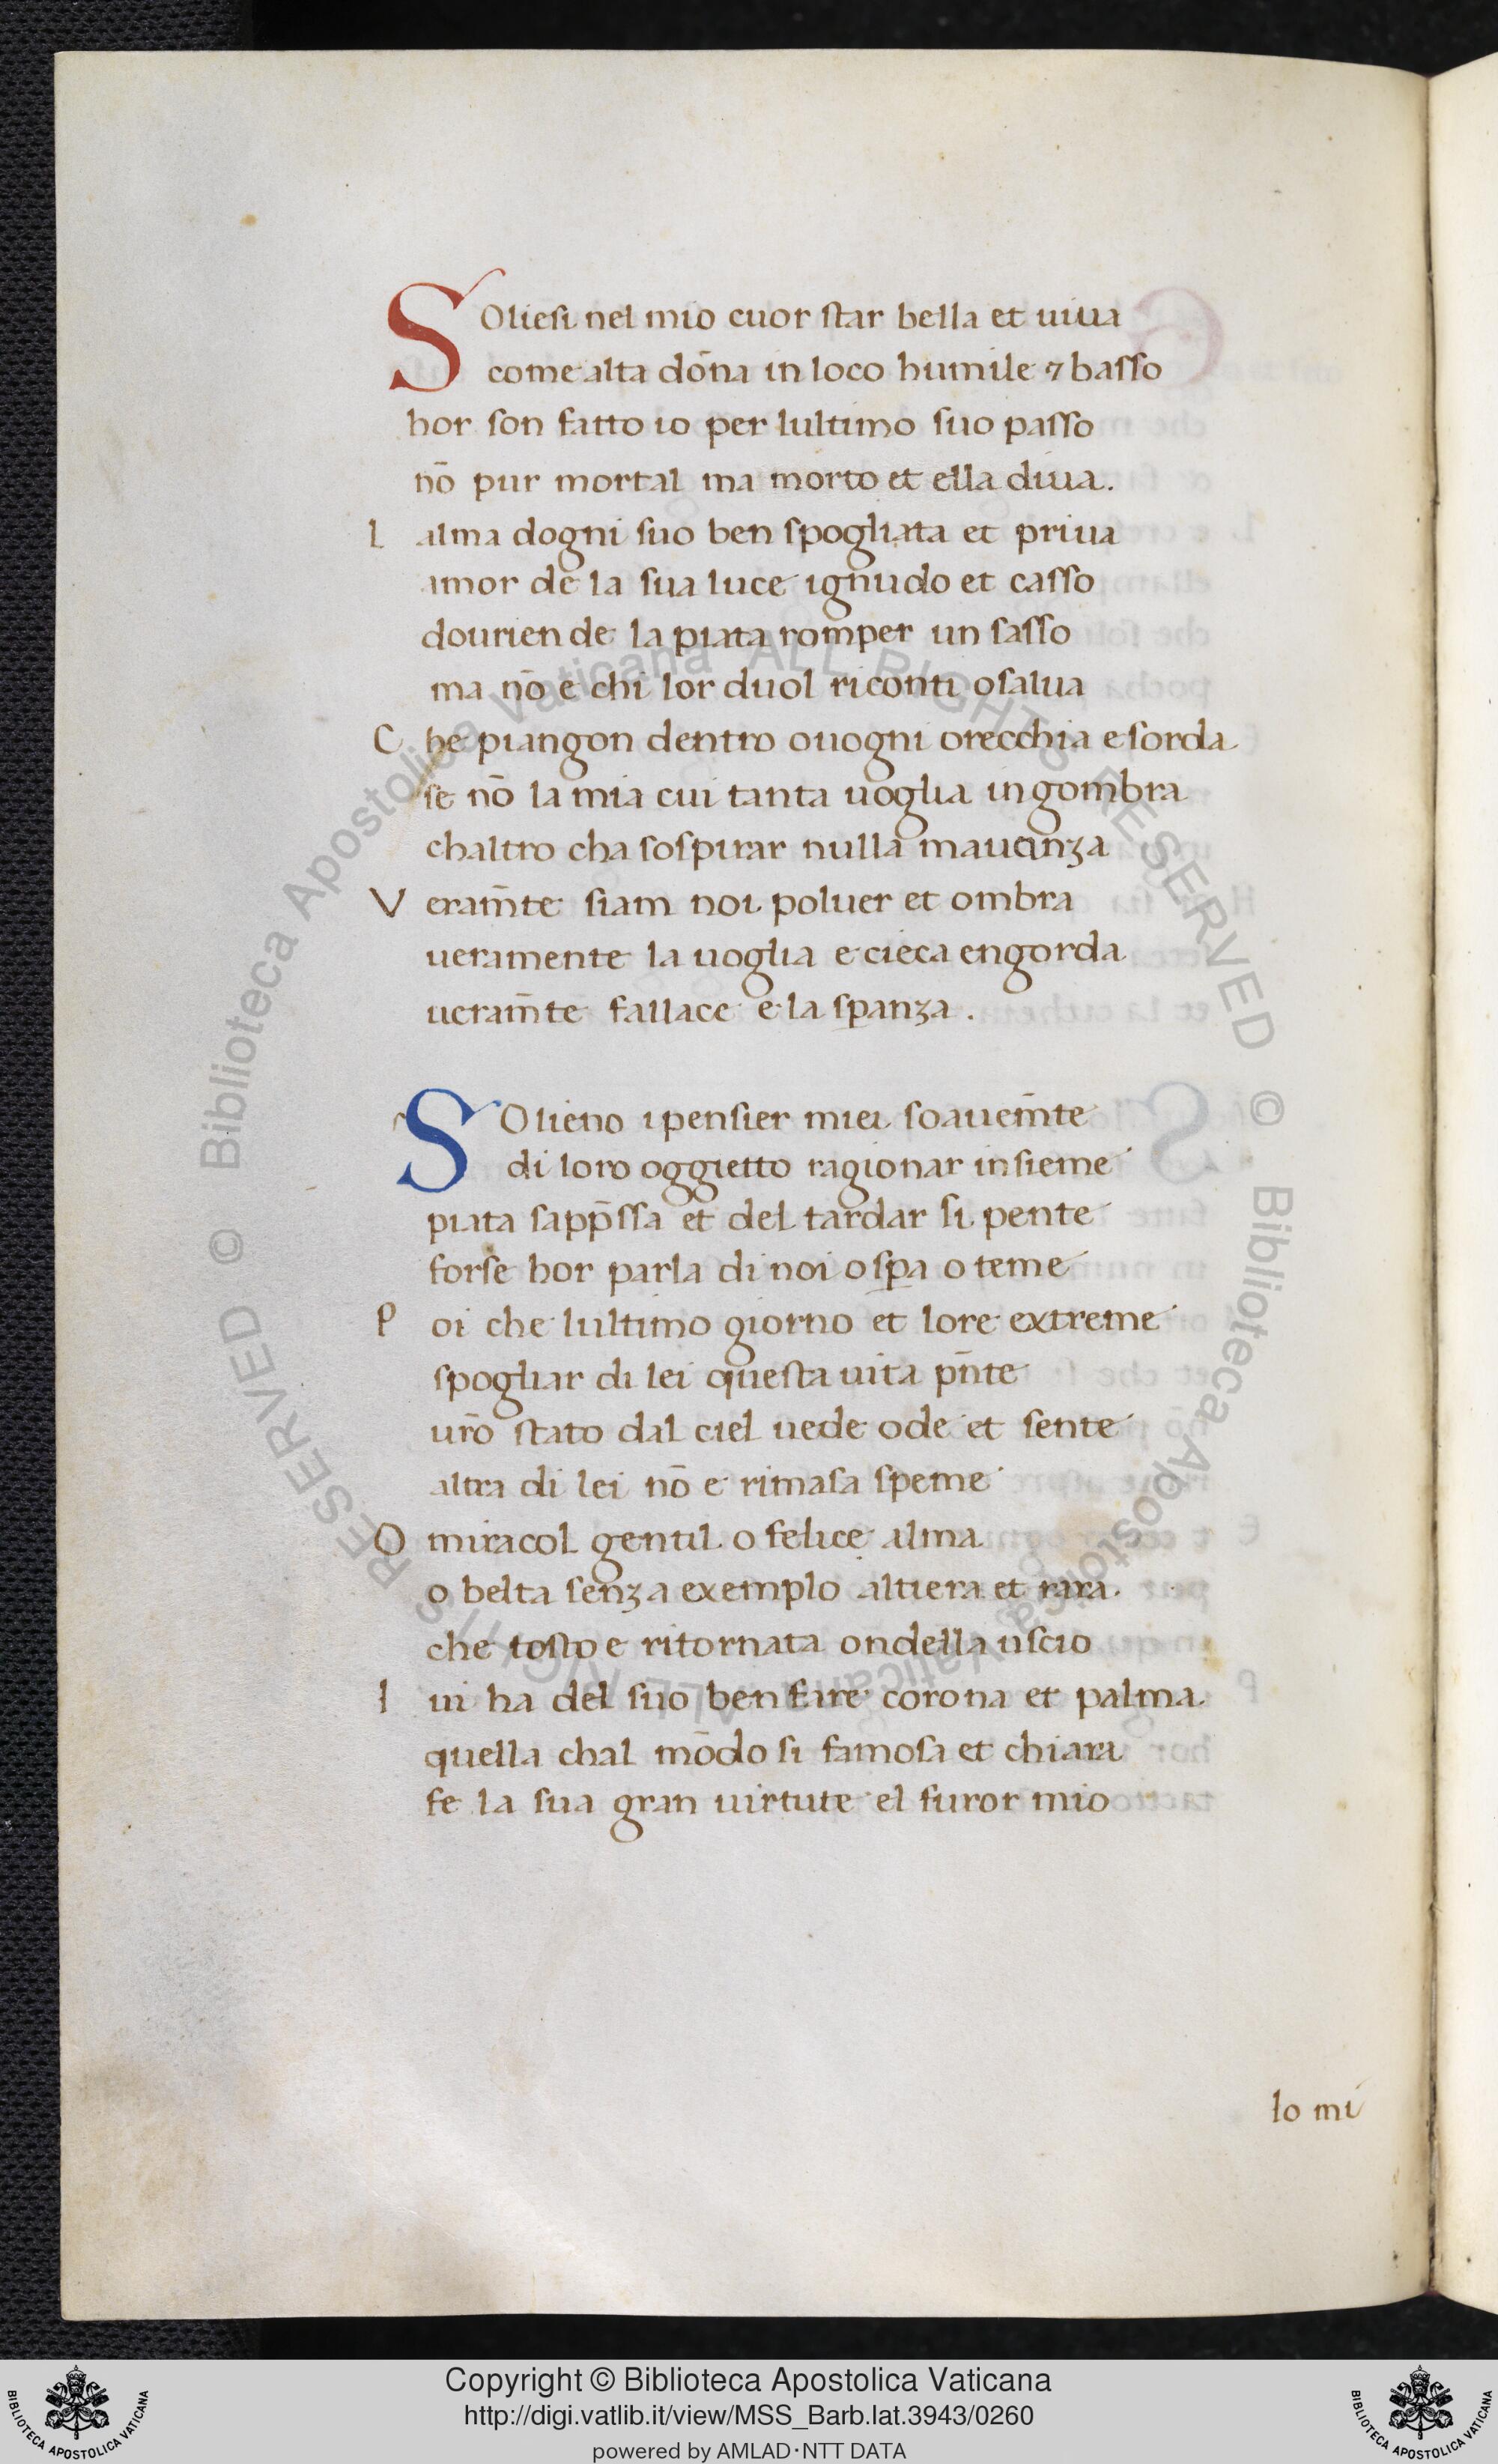 SOliesi nel mio cuor star bella et uiua
come alta dōna in loco humile ⁊ basso
hor son fatto io per lultimo suo passo
nō pur mortal ma morto et ella diua.
L alma dogni suo ben spogliata et priua
amor de la sua luce ignudo et casso
dourien de la piata romper un sasso
ma nō e chi lor duol riconti o salua
C he piangon dentro ouogni orecchia e sorda
se nō la mia cui tanta uoglia ingombra
chaltro cha sospirar nulla mauanza
V eram̄te siam noi poluer et ombra
ueramente la uoglia e cieca engorda
ueram̄te fallace e la sꝑanza.
SOlieno i pensier miei soauem̄te
di loro oggietto ragionar insieme
piata sapp̄ssa et del tardar si pente
forse hor parla di noi o sꝑa o teme
P oi che lultimo giorno et lore extreme
spogliar di lei questa uita pn̄te
ur̄o stato dal ciel uede ode et sente
altra di lei nō e rimasa speme
O miracol gentil o felice alma
o belta senza exemplo altiera et rara.
che tosto e ritornata ondella uscio
I ui ha del suo ben fare corona et palma
quella chal mōdo si famosa et chiara
fe la sua gran uirtute el furor mio
Io mi
Copyright © Biblioteca Apostolica Vaticana
http://digi.vatlib.it/view/MSS_Barb.lat.3943/0260
powered by AMLAD·NTT DATA
BIBLIOTECA APOSTOLICA VATICANA
BIBLIOTECA APOSTOLICA VATICANA
© Biblioteca Apostolica Vaticana ALL RIGHTS RESERVED
© Biblioteca Apostolica Vaticana ALL RIGHTS RESERVED